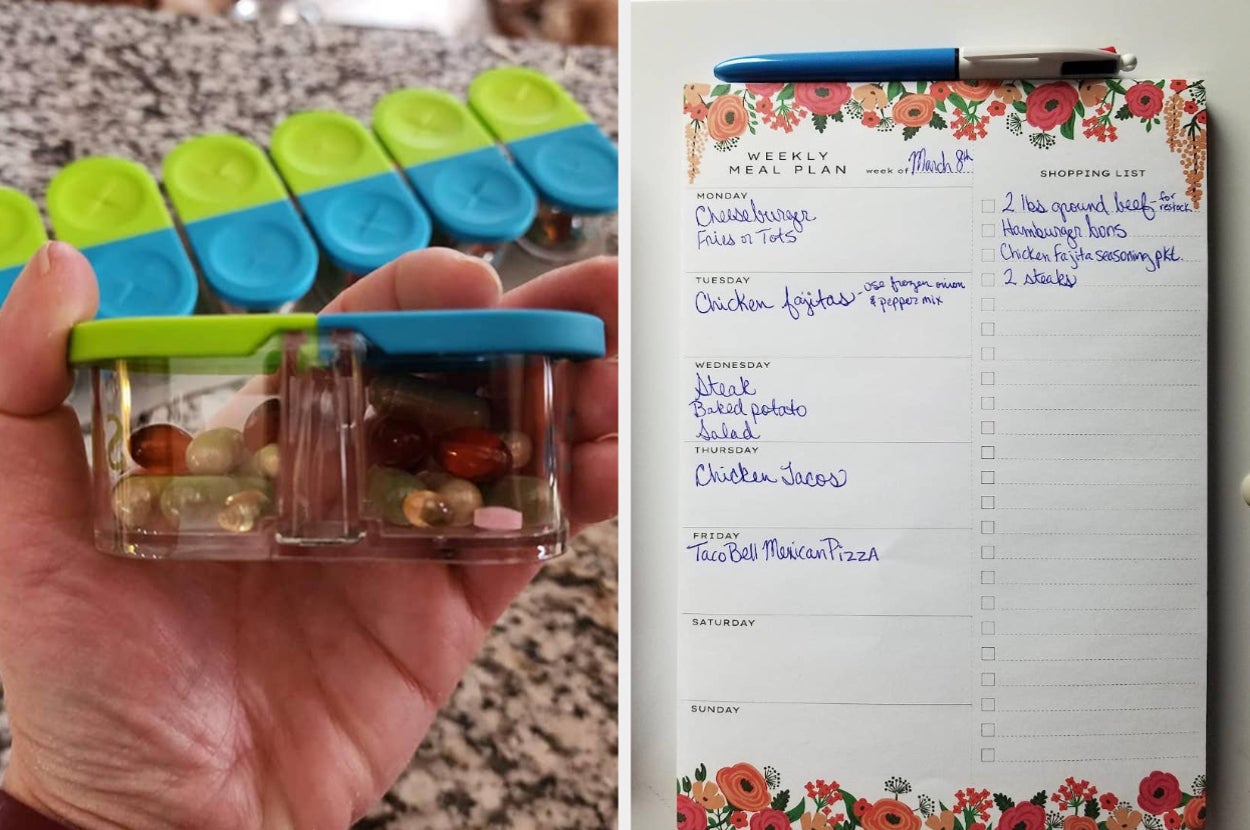 WEEKLY
MEAL PLAN
week of March 8th
MONDAY
Cheeseburger
Fries or Tots
TUESDAY
Chicken fajitas - use frozen onion
& pepper mix
WEDNESDAY
Steak
Baked potato
Salad
THURSDAY
Chicken Tacos
FRIDAY
Taco Bell Mexican Pizza
SATURDAY
SUNDAY
SHOPPING LIST
2 lbs ground beef - for
restock
Hamburger bons
Chicken Fajita seasoning pkt.
2 steaks